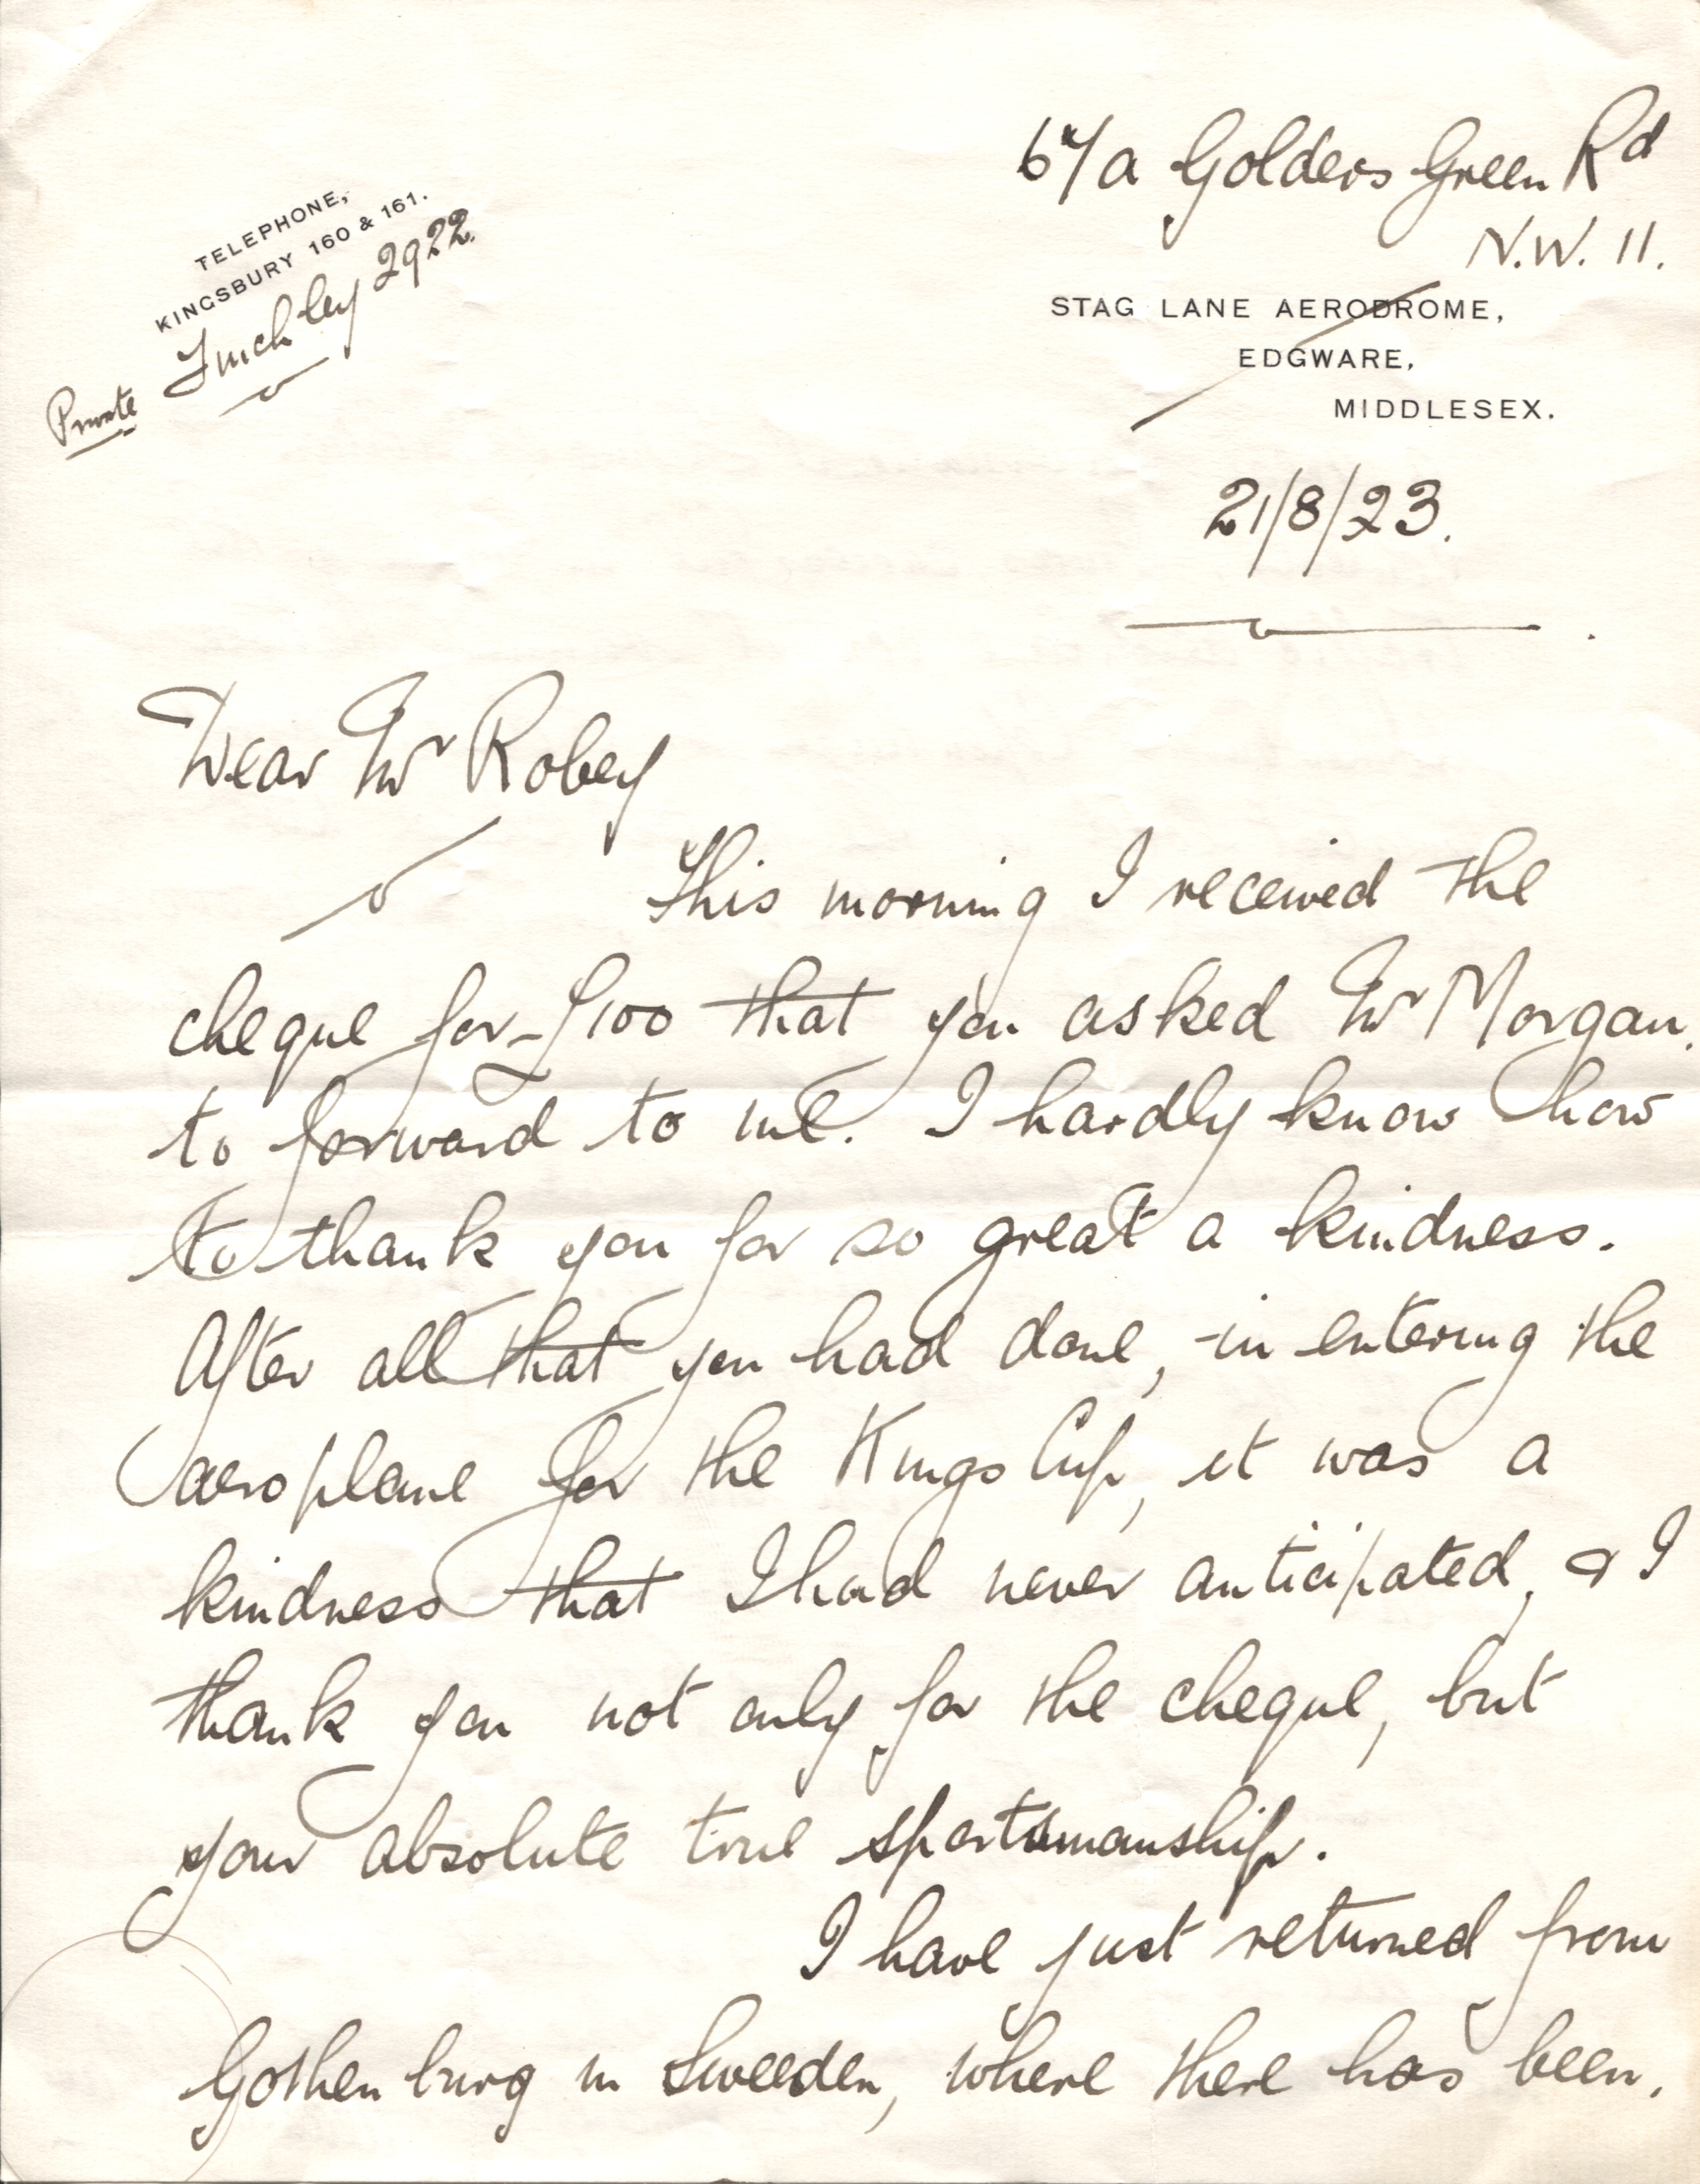 TELEPHONE,
KINGSBURY 160 & 161.
Private Finchley 2922.
67/a Golders Green Rd
N.W. 11.
STAG LANE AERODROME,
EDGWARE,
MIDDLESEX.
21/8/23.
Dear Mr Robey
This morning I received the
cheque for £100 that you asked Mr Morgan.
to forward to me. I hardly know how
to thank you for so great a kindness.
After all that you had done, in entering the
aeroplane for the Kings Cup, it was a
kindness that I had never anticipated, & I
thank you not only for the cheque, but
your absolute true sportsmanship.
I have just returned from
Gothenburg in Sweeden, where there has been.